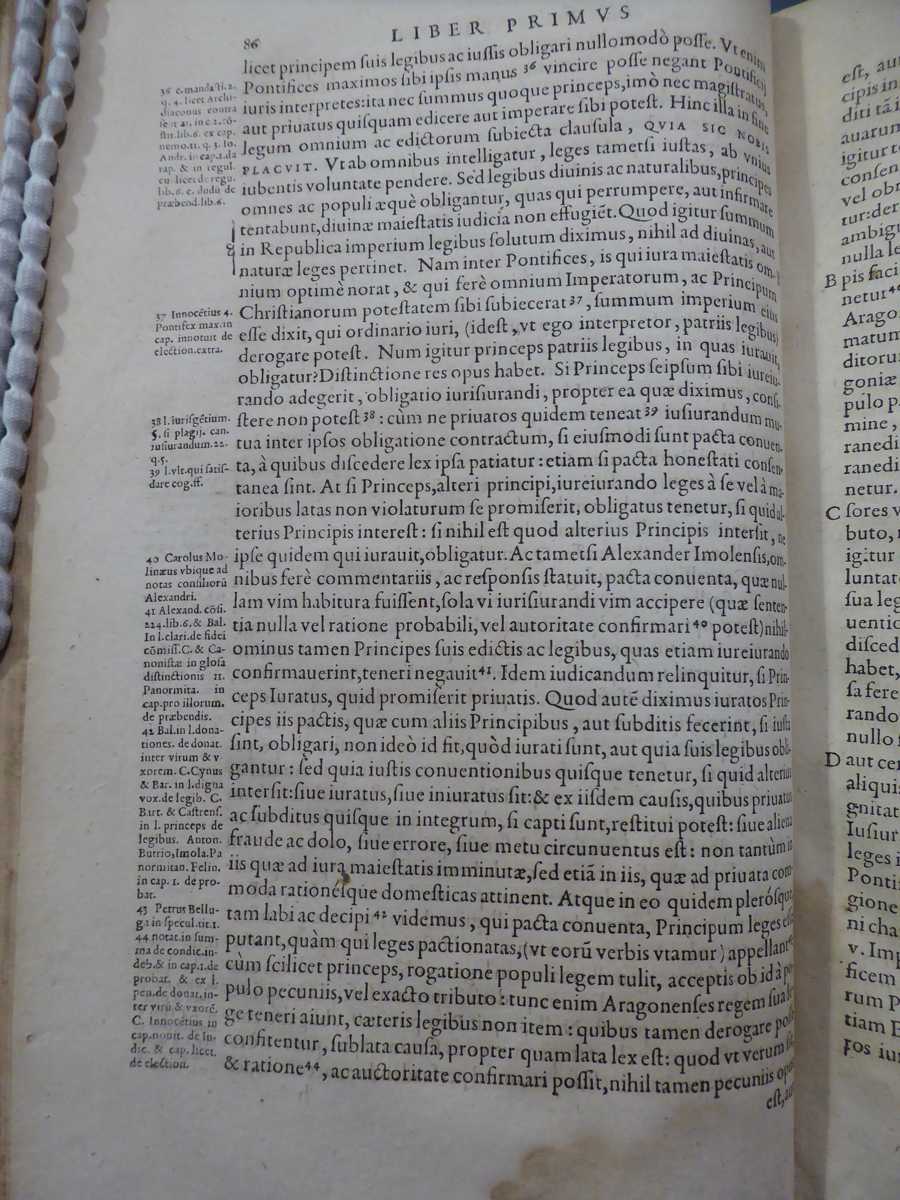 86
LIBER PRIMVS
licet principem suis legibus ac iussis obligari nullomodò posse. Vt enim
Pontifices maximos sibi ipsis manus 36 vincire posse negant Pontificij
iuris interpretes: ita nec summus quoque princeps, imò nec magistratus,
aut priuatus quisquam edicere aut imperare sibi potest. Hinc illa in fine
legum omnium ac edictorum subiecta clausula, QVIA SIC NOBIS
PLACVIT. Vt ab omnibus intelligatur, leges tametsi iustas, ab vnius
iubentis voluntate pendere. Sed legibus diuinis ac naturalibus, principes
omnes ac populi æquè obligantur, quas qui perrumpere, aut infirmare
tentabunt, diuinæ maiestatis iudicia non effugiẽt. Quod igitur summum
in Republica imperium legibus solutum diximus, nihil ad diuinas, aut
naturæ leges pertinet. Nam inter Pontifices, is qui iura maiestatis om-
nium optimè norat, & qui ferè omnium Imperatorum, ac Principum
Christianorum potestatem sibi subiecerat 37, summum imperium eius
esse dixit, qui ordinario iuri, (idest, vt ego interpretor, patriis legibus)
derogare potest. Num igitur princeps patriis legibus, in quas iurauit,
obligatur? Distinctione res opus habet. Si Princeps seipsum sibi iureiu-
rando adegerit, obligatio iurisiurandi, propter ea quæ diximus, consi-
stere non potest 38: cùm ne priuatos quidem teneat 39 iusiurandum mu-
tua inter ipsos obligatione contractum, si eiusmodi sunt pacta conuen-
ta, à quibus discedere lex ipsa patiatur: etiam si pacta honestati consen-
tanea sint. At si Princeps, alteri principi, iureiurando leges à se vel à ma-
ioribus latas non violaturum se promiserit, obligatus tenetur, si quid al-
terius Principis interest: si nihil est quod alterius Principis intersit, ne
ipse quidem qui iurauit, obligatur. Ac tametsi Alexander Imolensis, om-
nibus ferè commentariis, ac responsis statuit, pacta conuenta, quæ nul-
lam vim habitura fuissent, sola vi iurisiurandi vim accipere (quæ senten-
tia nulla vel ratione probabili, vel autoritate confirmari 40 potest) nihil-
ominus tamen Principes suis edictis ac legibus, quas etiam iureiurando
confirmauerint, teneri negauit 41. Idem iudicandum relinquitur, si Prin-
ceps Iuratus, quid promiserit priuatis. Quod autẽ diximus iuratos Prin-
cipes iis pactis, quæ cum aliis Principibus, aut subditis fecerint, si iusta
sint, obligari, non ideò id fit, quòd iurati sunt, aut quia suis legibus obli-
gantur: sed quia iustis conuentionibus quisque tenetur, si quid alterius
intersit: siue iuratus, siue iniuratus sit: & ex iisdem causis, quibus priuatus
ac subditus quisque in integrum, si capti sunt, restitui potest: siue aliena
fraude ac dolo, siue errore, siue metu circunuentus est: non tantùm in
iis quæ ad iura maiestatis imminutæ, sed etiã in iis, quæ ad priuata com-
moda rationésque domesticas attinent. Atque in eo quidem plerósque
tam labi ac decipi 42 videmus, qui pacta conuenta, Principum leges esse
putant, quàm qui leges pactionatas, (vt eorũ verbis vtamur) appellant 43
cùm scilicet princeps, rogatione populi legem tulit, acceptis ob id à po-
pulo pecuniis, vel exacto tributo: tunc enim Aragonenses regem sua le-
ge teneri aiunt, cæteris legibus non item: quibus tamen derogare posse
confitentur, sublata causa, propter quam lata lex est: quod vt verum sit
& ratione 44, ac auctoritate confirmari possit, nihil tamen pecuniis opus
est, aut
36 c. mandasti. 2.
q. 4. licet Archi-
diaconus contra
37 Innocẽtius 4.
Pontifex max. in
cap. innotuit de
election. extra.
38 l. iurisgẽtium.
§. si plagij. can.
iusiurandum. 22.
q. 5.
39 l. vlt. qui satis-
dare cog. ff.
40 Carolus Mo-
linæus vbique ad
notas consiliorũ
Alexandri.
41 Alexand. cõsi.
224. lib. 6. & Bal.
In l. clari. de fidei
cõmiss. C. & Ca-
nonistæ in glosa
distinctionis 11.
Panormita. in
cap. pro illorum.
de præbendis.
42 Bal. in l. dona-
tiones. de donat.
inter virum & v
xorem. C. Cynus
& Bar. in l. digna
vox. de legib. C.
Bart. & Castrens.
in l. princeps de
legibus. Anton.
Butrio, Imola. Pa
normitan. Felin.
in cap. 1. de pro-
bat.
43 Petrus Bellu-
ga in specul. tit. 1.
44 notat. in sum-
ma de condic. in-
deb. & in cap. 1. de
probat. & ex l.
pen. de donat. in-
ter virũ & vxorẽ.
C. Innocẽtius in
cap. nouit. de iu-
dic. & cap. licet.
de election.
B
C
D